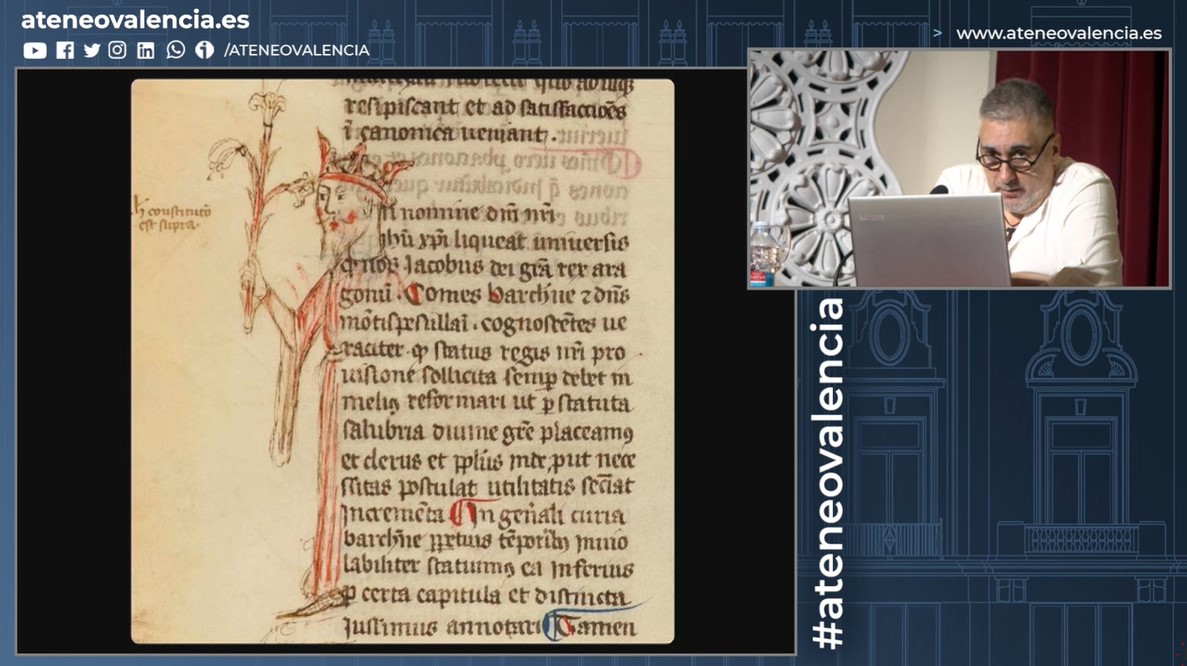 ateneovalencia.es
/ATENEOVALENCIA
> www.ateneovalencia.es
#ateneovalencia
resipiscant et ad satisfacciões
ī canonica ueniant.
ħ constitutō
est supra
n nomine dm̄ nr̄i
ihū xp̄i liqueat uniuersis
q̄ nos Jacobus dei grā rex ara
gonū. Comes barch̄ne ⁊ dn̄s
mōtispesullaī. cognoscētes ue
raciter. ꝙ status regis nr̄i pro
uisione sollicita semꝑ debet in
meliꝯ reformari ut ꝑ statuta
salubria diuine grē placeamꝯ
et clerus et pplūs
put nece
ssitas postulat utilitatis
Incremēta In gen̄ali curia
barch̄ne
labiliter statuimꝯ ea Inferius
ꝑ certa capitula et distincta
Iussimus annotari Tamen